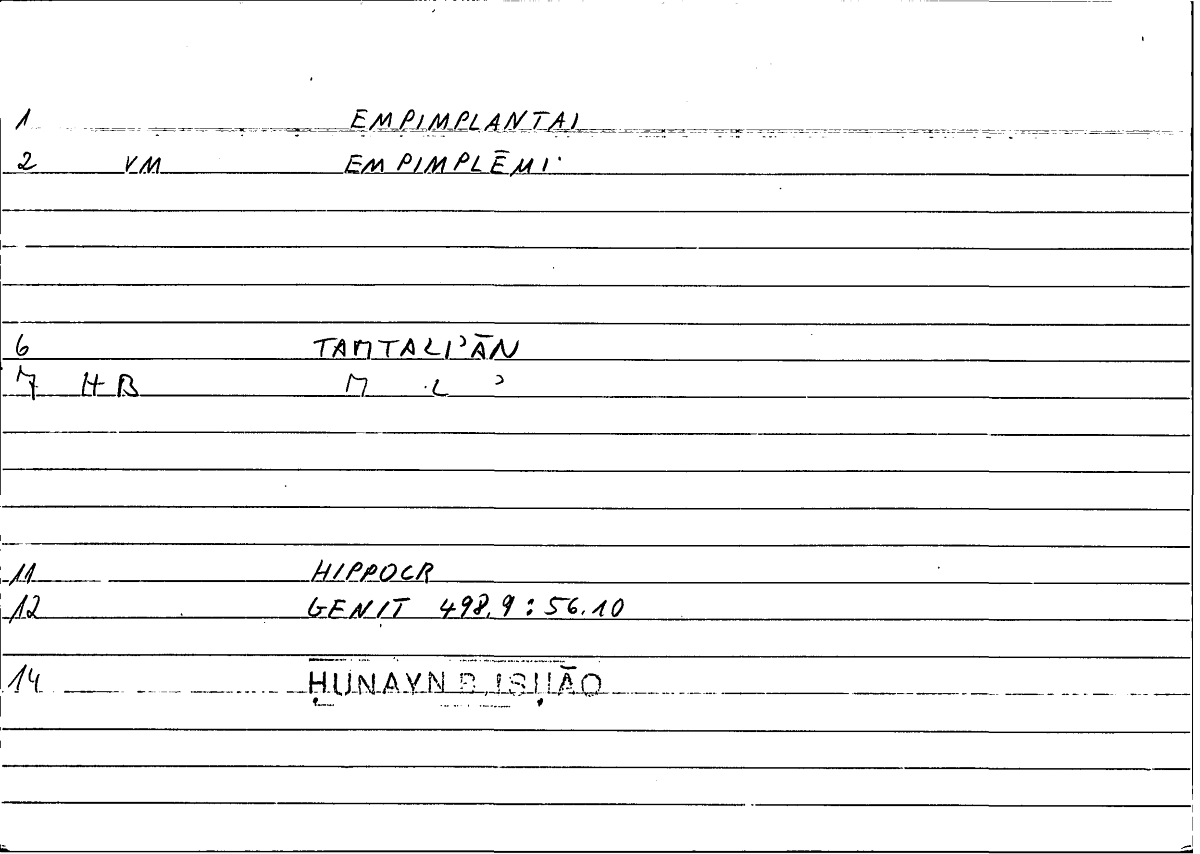 1 EMPIMPLANTAI
2 VM EMPIMPLĒMI
6 TAMTALIʾĀN
7 HB M L ʾ
11 HIPPOCR
12 GENIT 498.9 : 56.10
14 ḤUNAYN B. ISḤĀQ